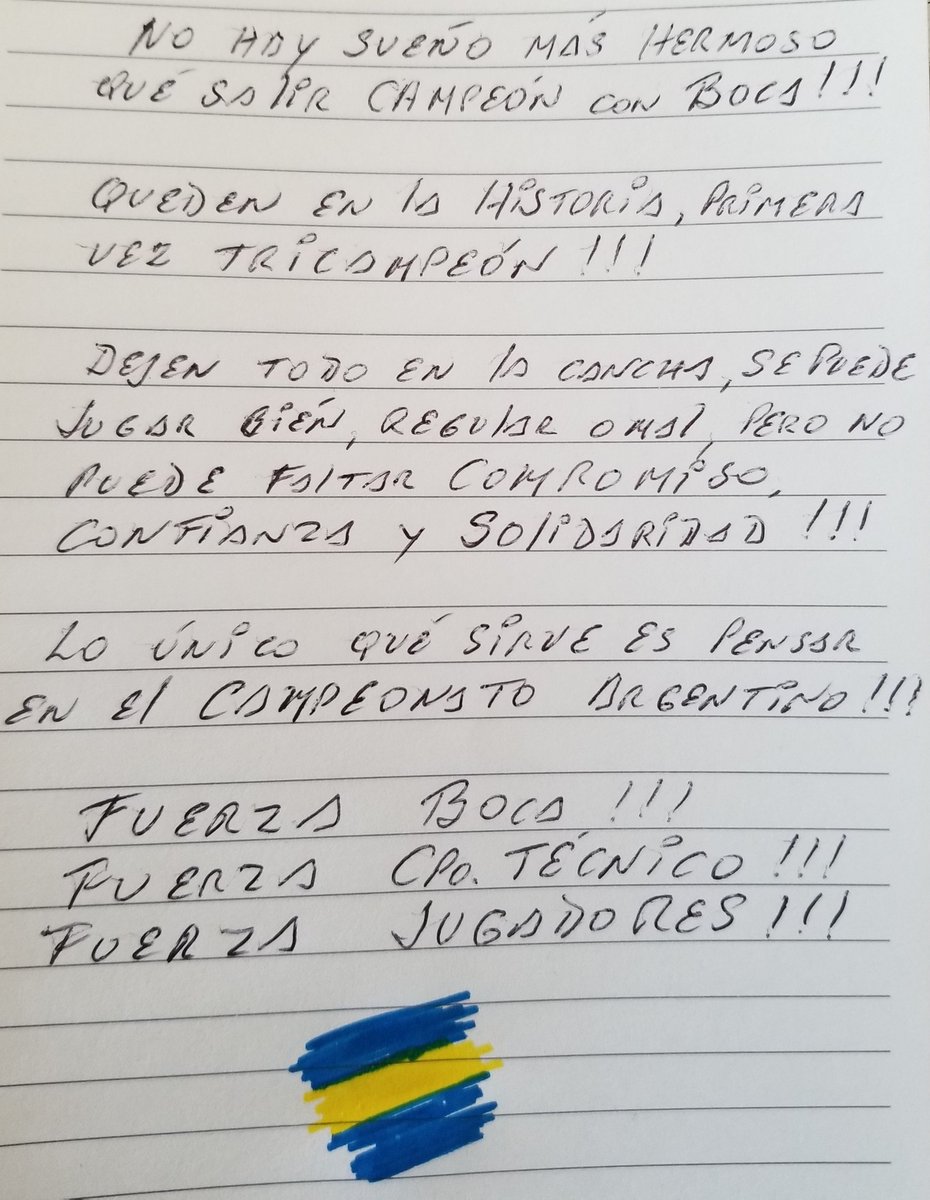 NO HAY SUEÑO MÁS HERMOSO
QUÉ SALIR CAMPEÓN CON BOCA!!!
QUEDEN EN LA HISTORIA, PRIMERA
VEZ TRICAMPEÓN!!!
DEJEN TODO EN LA CANCHA, SE PUEDE
JUGAR BIÉN, REGULAR O MAL, PERO NO
PUEDE FALTAR COMPROMISO,
CONFIANZA Y SOLIDARIDAD!!!
LO ÚNICO QUÉ SIRVE ES PENSAR
EN EL CAMPEONATO ARGENTINO!!!
FUERZA BOCA!!!
FUERZA CPO. TÉCNICO!!!
FUERZA JUGADORES!!!